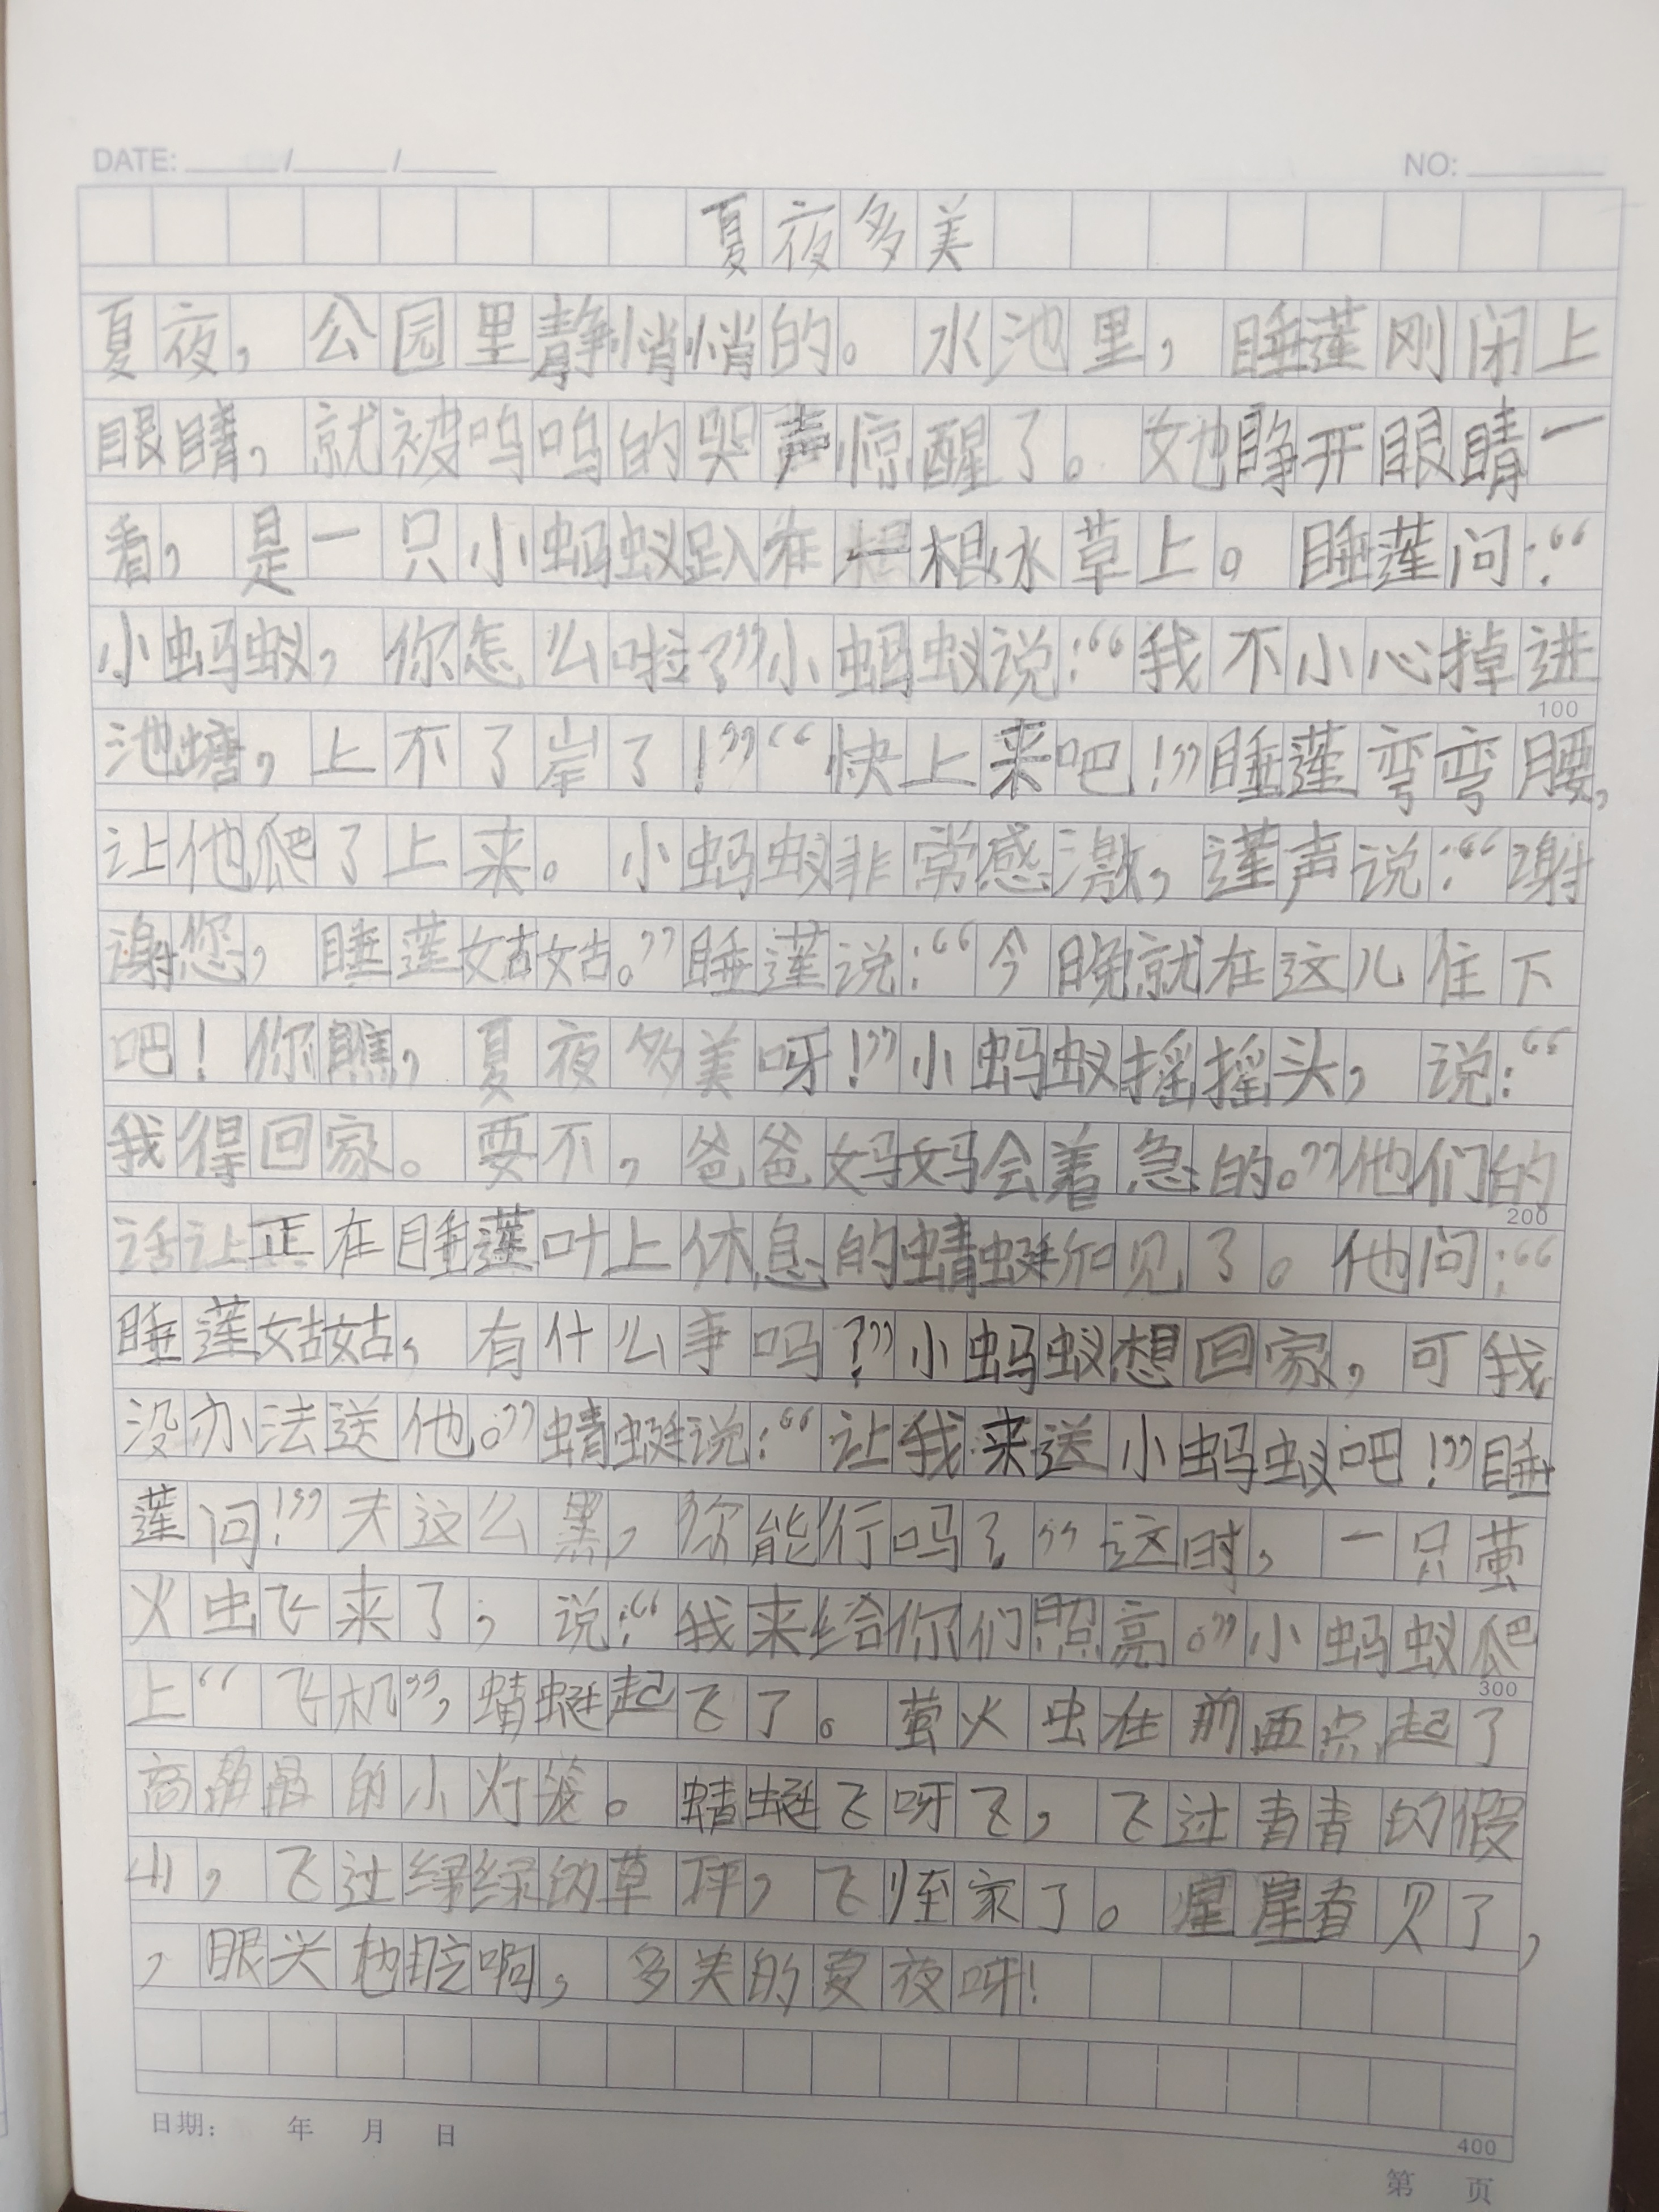 DATE: / / NO:
夏夜多美
夏夜，公园里静悄悄的。水池里，睡莲刚闭上
眼睛，就被呜呜的哭声惊醒了。她睁开眼睛一
看，是一只小蚂蚁趴在一根水草上。睡莲问：“
小蚂蚁，你怎么啦？”小蚂蚁说：“我不小心掉进
100
池塘，上不了岸了！”“快上来吧！”睡莲弯弯腰，
让他爬了上来。小蚂蚁非常感激，声说：“谢
谢您，睡莲姑姑。”睡莲说：“今晚就在这儿住下
吧！你瞧，夏夜多美呀！”小蚂蚁摇摇头，说：“
我得回家。要不，爸爸妈妈会着急的。”他们的
200
话让正在睡莲叶上休息的蜻蜓知见了。他问：“
睡莲姑姑，有什么事吗？”小蚂蚁想回家，可我
没办法送他。”蜻蜓说：“让我来送小蚂蚁吧！”睡
莲问！”天这么黑，你能行吗？”这时，一只萤
火虫飞来了，说：“我来给你们照亮。”小蚂蚁爬
300
上“飞机”，蜻蜓起飞了。萤火虫在前面点起了
的小灯笼。蜻蜓飞呀飞，飞过青青的假
山，飞过绿绿的草坪，飞家了。星星看见了，
，眼也啊，多美的夏夜呀！
日期： 年 月 日
400
第 页